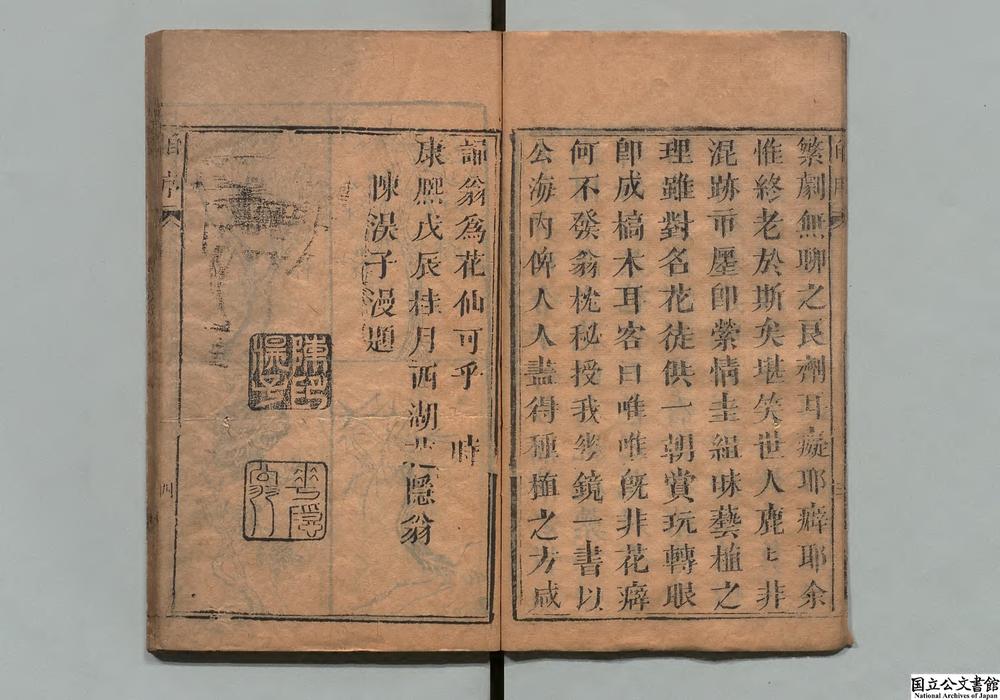 自序
繁劇無聊之良劑耳癡耶癖耶余
惟終老於斯矣堪笑世人鹿匕非
混跡市廛卽縈情圭組昧藝植之
理雖對名花徒供一朝賞玩轉眼
卽成槁木耳客曰唯唯旣非花癖
何不發翁枕秘授我花鏡一書以
公海內俾人人盡得種植之方咸
誦翁為花仙可乎 時
康熙戊辰桂月西湖花隱翁
陳淏子漫題
自序
四
国立公文書館
National Archives of Japan